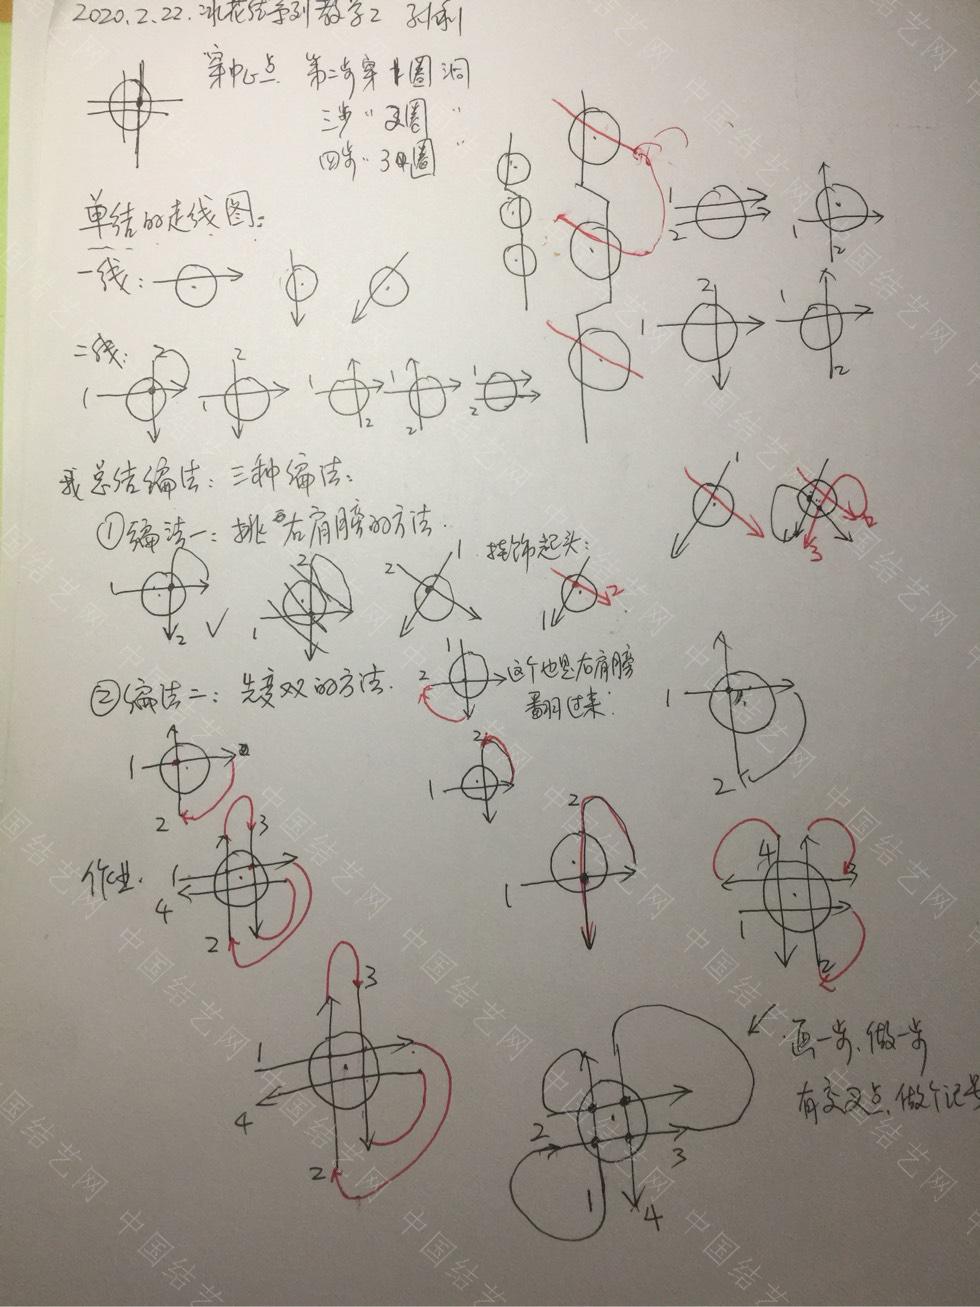 2020.2.22.冰花结系列教学2
穿中心点 第二步穿1圈洞
三步〃2圈〃
四步〃3圈〃
单结的走线图:
一线:
二线:
1 2
1 2
1 2
1 2
1 2
1 2
1 2
1 2
1 2
我总结编法:三种编法:
①编法一:挑右肩膀的方法.
挂饰起头:
1 2
1 2
1 2
1 2
2 3
②编法二:先变双的方法.
1 2
这个也是右肩膀
翻过来:
1 2
1 2
1 2
作业.
1 2 3 4
1 2
1 2 3 4
1 2 3 4
1 2 3 4
画一步、做一步
有交叉点、做个记号
中国结艺网